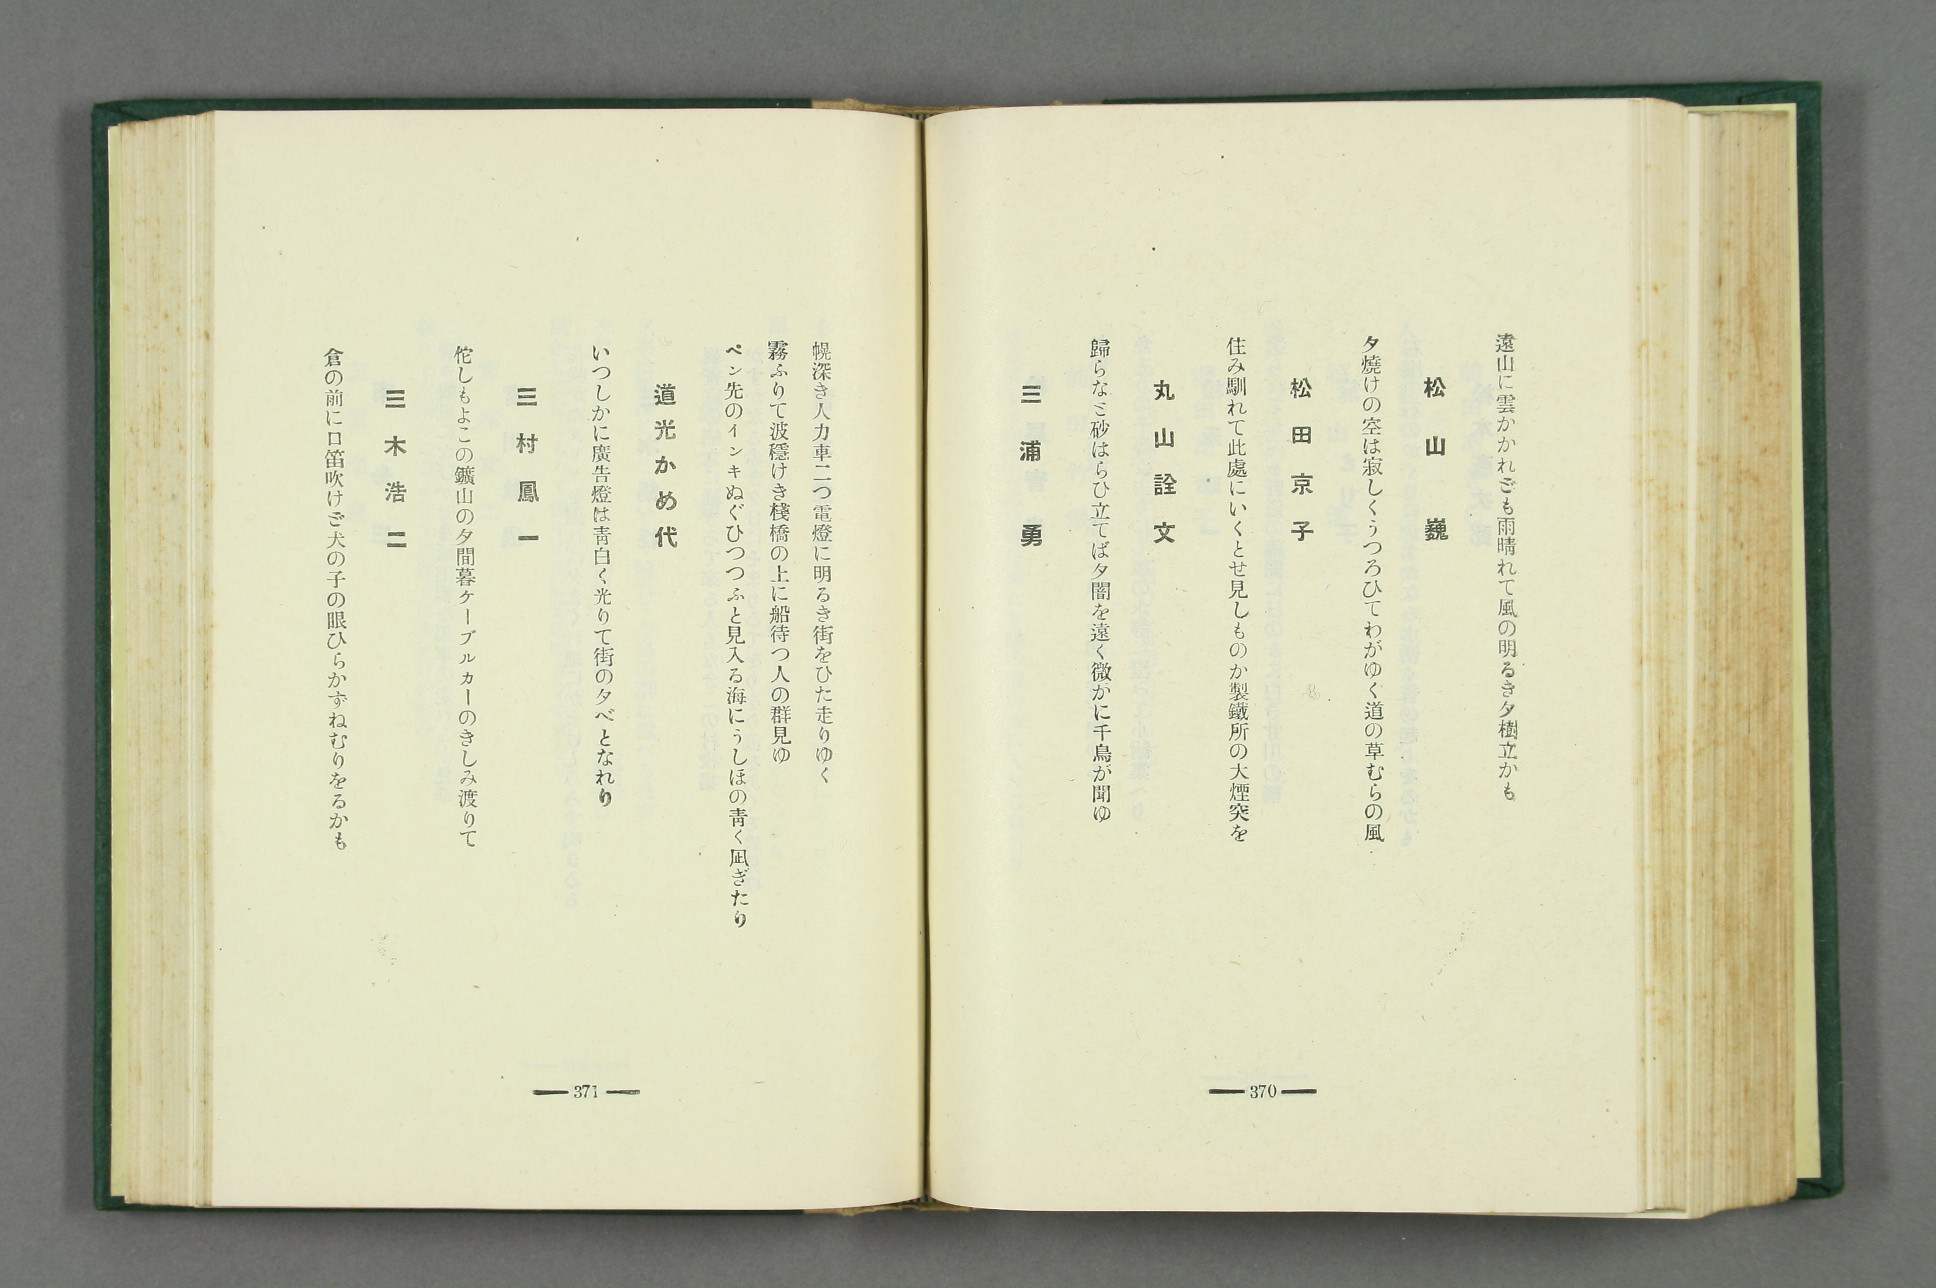 遠山に雲かかれども雨晴れて風の明るき夕樹立かも
松山巍
夕燒けの空は寂しくうつろひてわがゆく道の草むらの風
松田京子
住み馴れて此處にいくとせ見しものか製鐵所の大煙突を
丸山詮文
歸らなと砂はらひ立てば夕闇を遠く微かに千鳥が聞ゆ
三浦勇
370
幌深き人力車二つ電燈に明るき街をひた走りゆく
霧ふりて波穩けき棧橋の上に船待つ人の群見ゆ
ペン先のインキぬぐひつつふと見入る海にうしほの青く凪ぎたり
道光かめ代
いつしかに廣告燈は青白く光りて街の夕べとなれり
三村鳳一
侘しもよこの鑛山の夕間暮ケーブルカーのきしみ渡りて
三木浩二
倉の前に口笛吹けど犬の子の眼ひらかずねむりをるかも
371